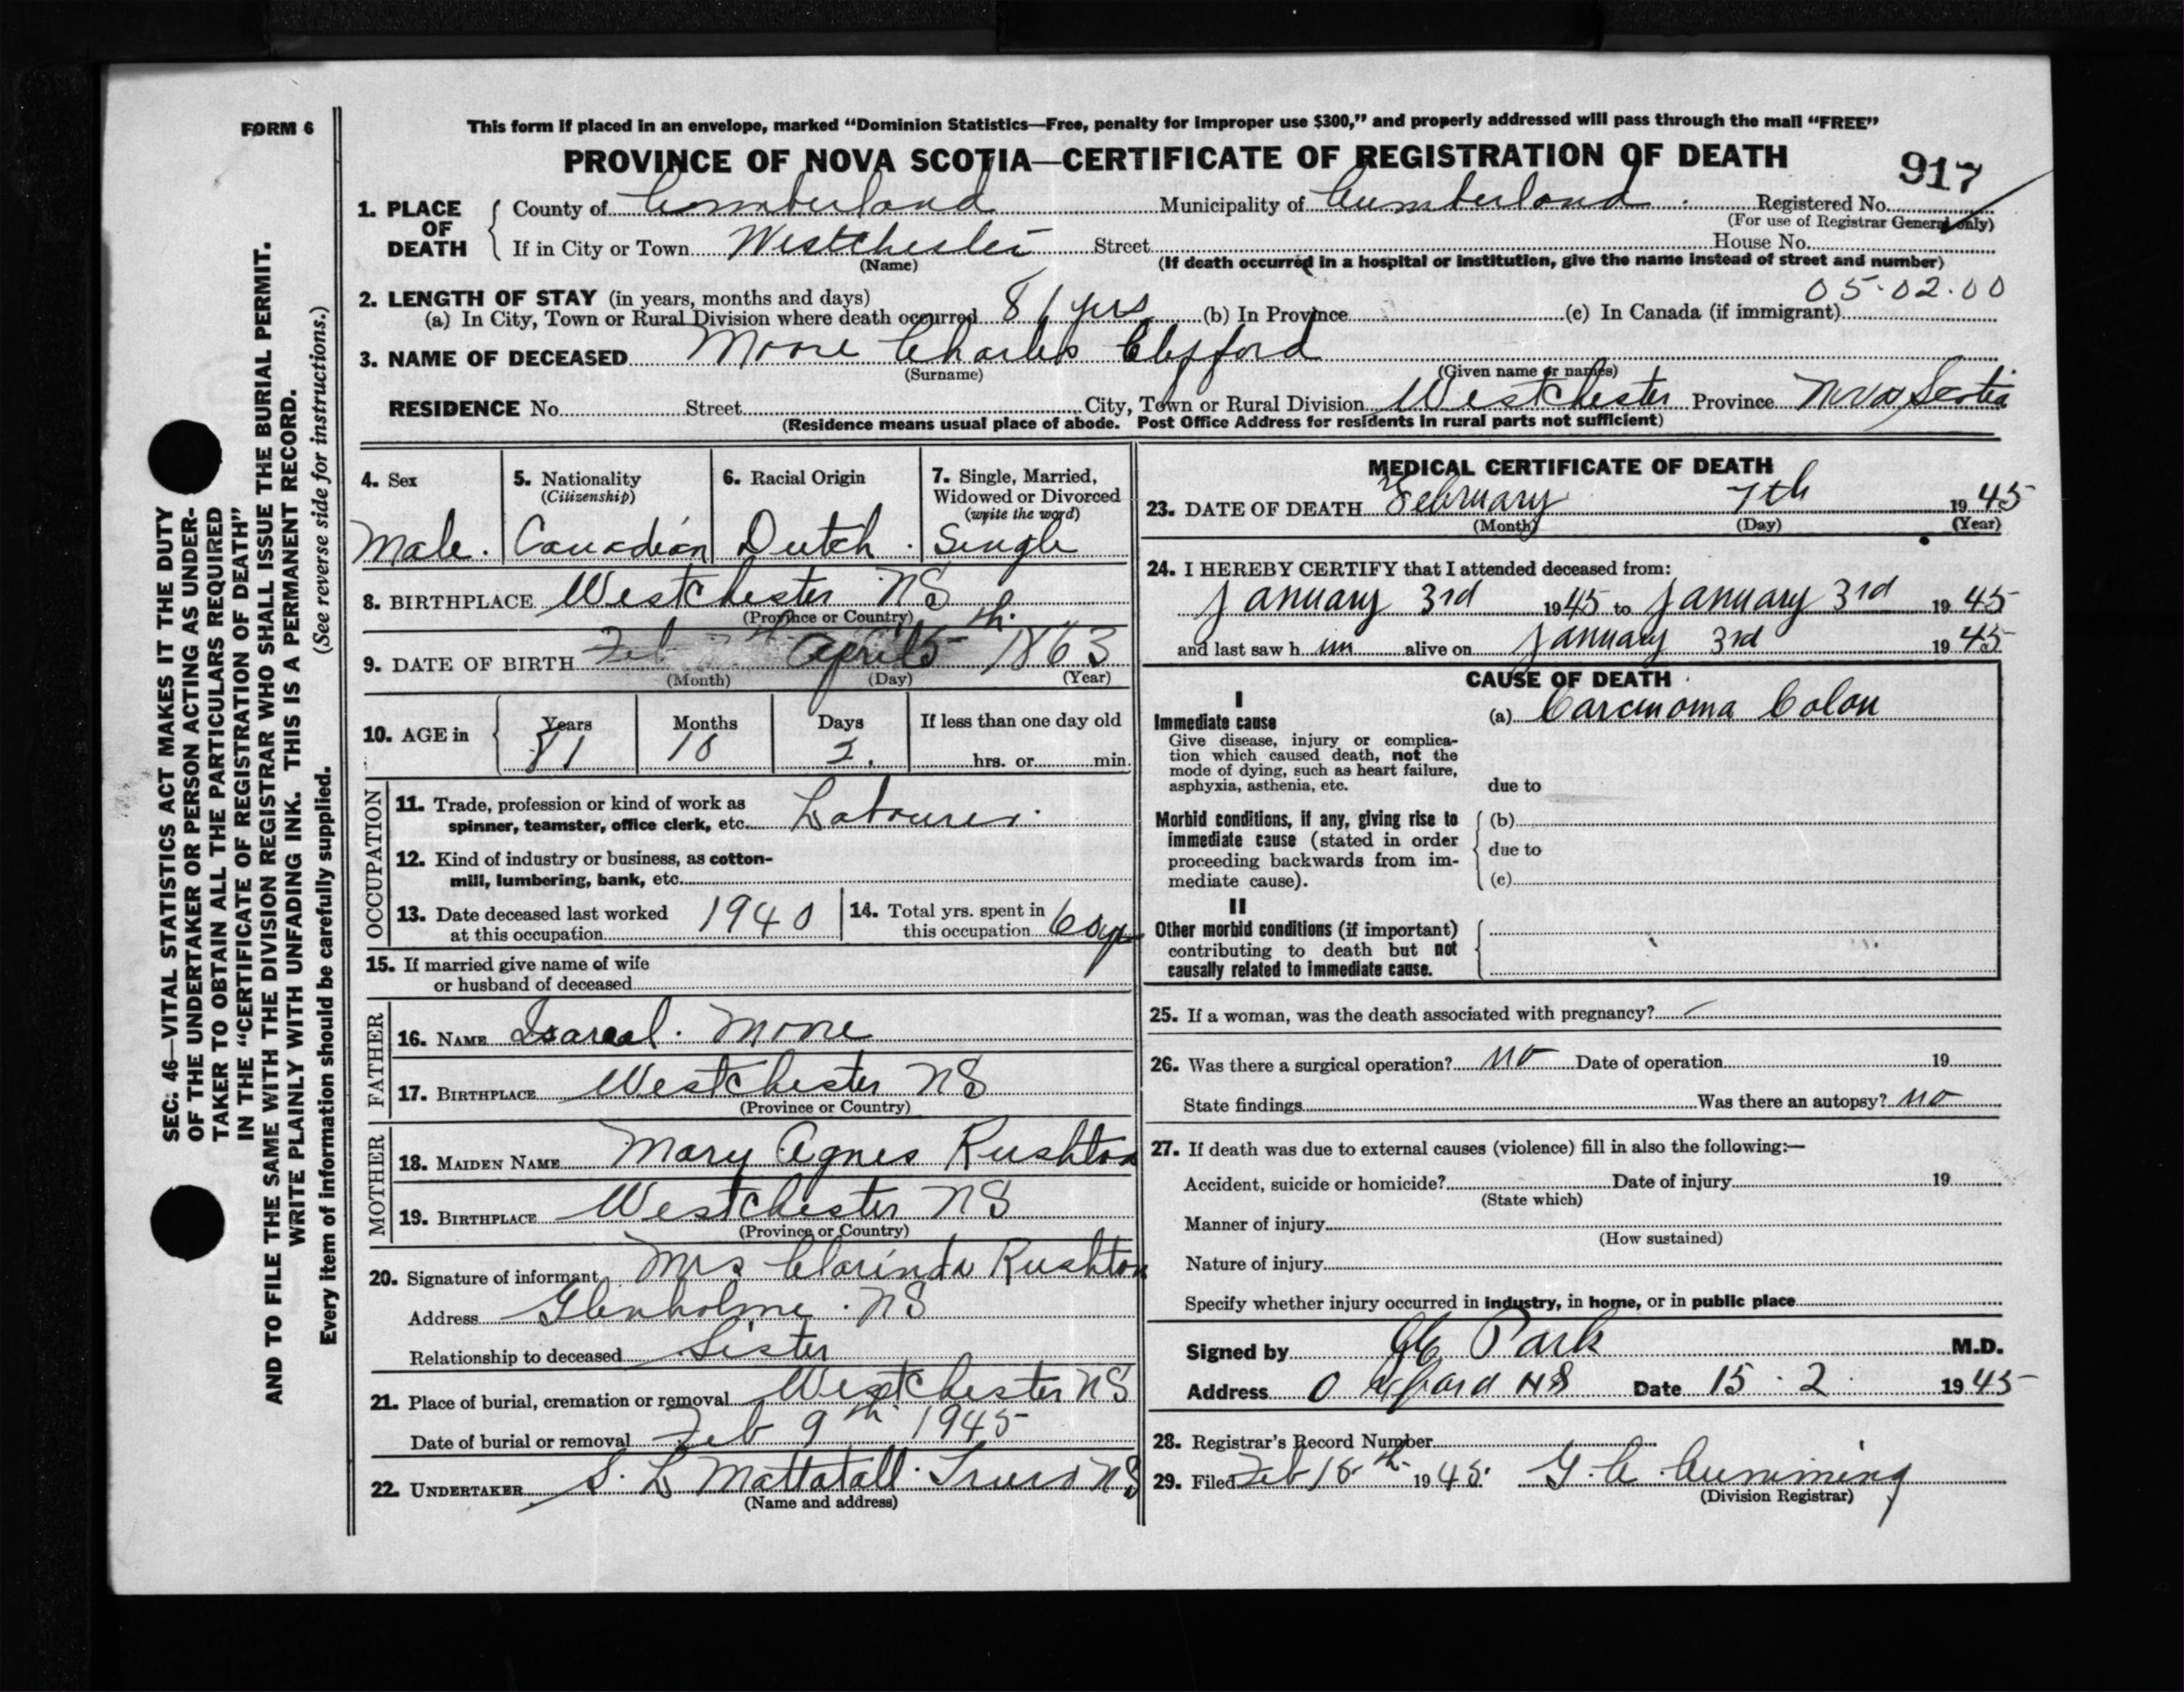 FORM 6
This form if placed in an envelope, marked “Dominion Statistics—Free, penalty for improper use $300,” and properly addressed will pass through the mail “FREE”
PROVINCE OF NOVA SCOTIA—CERTIFICATE OF REGISTRATION OF DEATH
917
1. PLACE OF DEATH
County of Cumberland Municipality of Cumberland Registered No.
(For use of Registrar General only)
If in City or Town Westchester Street House No.
(Name) (If death occurred in a hospital or institution, give the name instead of street and number)
05.02.00
2. LENGTH OF STAY (in years, months and days)
(a) In City, Town or Rural Division where death occurred 81 yrs (b) In Province (c) In Canada (if immigrant)
3. NAME OF DECEASED Moore Charles Clifford
(Surname) (Given name or names)
RESIDENCE No. Street City, Town or Rural Division Westchester Province Nova Scotia
(Residence means usual place of abode. Post Office Address for residents in rural parts not sufficient)
4. Sex
Male.
5. Nationality
(Citizenship)
Canadian
6. Racial Origin
Dutch.
7. Single, Married,
Widowed or Divorced
(write the word)
Single
8. BIRTHPLACE Westchester NS
(Province or Country)
9. DATE OF BIRTH Feb April 5th 1863
(Month) (Day) (Year)
10. AGE in
Years Months Days If less than one day old
81 10 2. hrs. or min.
OCCUPATION
11. Trade, profession or kind of work as
spinner, teamster, office clerk, etc. Labourer.
12. Kind of industry or business, as cotton-
mill, lumbering, bank, etc.
13. Date deceased last worked
at this occupation 1940
14. Total yrs. spent in
this occupation 60 yr
15. If married give name of wife
or husband of deceased
FATHER
16. NAME Isareal. Moore
17. BIRTHPLACE Westchester NS
(Province or Country)
MOTHER
18. MAIDEN NAME Mary Agnes Rushton
19. BIRTHPLACE Westchester NS
(Province or Country)
20. Signature of informant Mrs Clarinda Rushton
Address Glenholme. NS
Relationship to deceased Sister
21. Place of burial, cremation or removal Westchester NS
Date of burial or removal Feb 9th 1945
22. UNDERTAKER S. L Mattatall. Truro NS
(Name and address)
MEDICAL CERTIFICATE OF DEATH
23. DATE OF DEATH February 7th 1945
(Month) (Day) (Year)
24. I HEREBY CERTIFY that I attended deceased from:
January 3rd 1945 to January 3rd 1945
and last saw h im alive on January 3rd 1945
CAUSE OF DEATH
I
Immediate cause
Give disease, injury or complica-
tion which caused death, not the
mode of dying, such as heart failure,
asphyxia, asthenia, etc.
(a) Carcinoma Colon
due to
Morbid conditions, if any, giving rise to
immediate cause (stated in order
proceeding backwards from im-
mediate cause).
(b)
due to
(c)
II
Other morbid conditions (if important)
contributing to death but not
causally related to immediate cause.
25. If a woman, was the death associated with pregnancy?
26. Was there a surgical operation? no Date of operation 19
State findings Was there an autopsy? no
27. If death was due to external causes (violence) fill in also the following:—
Accident, suicide or homicide? Date of injury 19
(State which)
Manner of injury
(How sustained)
Nature of injury
Specify whether injury occurred in industry, in home, or in public place
Signed by Park M.D.
Address Oxford NS Date 15.2 1945
28. Registrar's Record Number
29. Filed Feb 15th 1945. G. C. Cumming
(Division Registrar)
SEC. 46—VITAL STATISTICS ACT MAKES IT THE DUTY
OF THE UNDERTAKER OR PERSON ACTING AS UNDER-
TAKER TO OBTAIN ALL THE PARTICULARS REQUIRED
IN THE “CERTIFICATE OF REGISTRATION OF DEATH”
AND TO FILE THE SAME WITH THE DIVISION REGISTRAR WHO SHALL ISSUE THE BURIAL PERMIT.
WRITE PLAINLY WITH UNFADING INK. THIS IS A PERMANENT RECORD.
Every item of information should be carefully supplied. (See reverse side for instructions.)